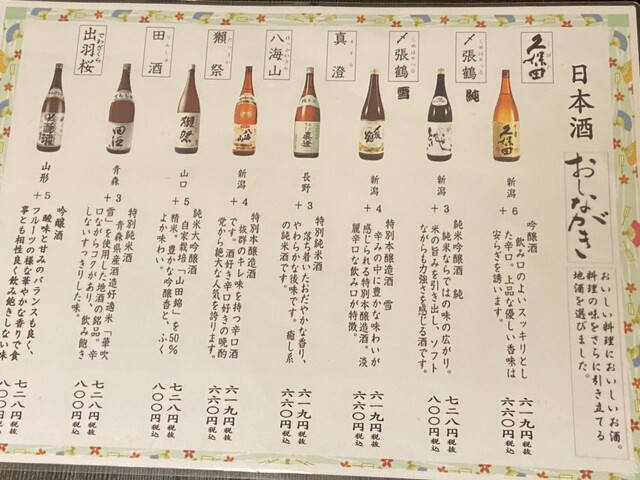 日本酒
おしながき
おいしい料理においしいお酒。
料理の味をさらに引き立てる
地酒を選びました。
久保田
新潟
+6
吟醸酒
飲み口のよいスッキリとし
た辛口。上品な優しい香味は
安らぎを誘います。
六一九円税抜
六六〇円税込
〆張鶴 純
新潟
+3
純米吟醸酒 純
純米酒ならではの味の広がり。
米の旨みを引き出し、ソフト
ながらも力強さを感じる酒です。
七二八円税抜
八〇〇円税込
〆張鶴 雪
新潟
+4
特別本醸造酒 雪
辛みの中に豊かな味わいが
感じられる特別本醸造酒。淡
麗辛口な飲み口が特徴。
六一九円税抜
六六〇円税込
真澄
ますみ
長野
+3
特別純米酒
落ち着いたおだやかな香り、
やわらかな後味です。癒し系
の純米酒です。
六一九円税抜
六六〇円税込
八海山
はっかいさん
新潟
+4
特別本醸造酒
抜群のキレ味を持つ辛口酒
です。酒好き辛口好きの晩酌
党から絶大な人気を誇ります。
六一九円税抜
六六〇円税込
獺祭
山口
+5
純米大吟醸酒
自家栽培「山田錦」を50%
精米。豊かな吟醸香と、ふく
よか味わい。
六一九円税抜
六六〇円税込
田酒
青森
+3
特別純米酒
青森県産酒造好適米「華吹
雪」を使用した地酒の銘品。辛
口ながらコクがあり、飲み飽き
しないすっきりした味。
七二八円税抜
八〇〇円税込
出羽桜
でわざくら
山形
+5
吟醸酒
酸味と甘みのバランスも良く、
フルーツの様な華やかな香りで食
事とも相性良く飲み飽きしない味
七二八円税抜
八〇〇円税込